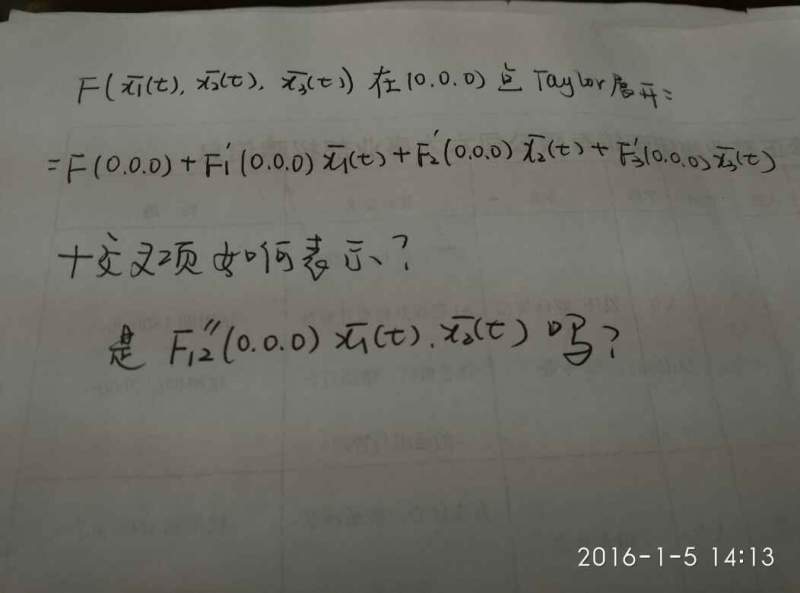 F(x̄₁(t), x̄₂(t), x̄₃(t)) 在(0.0.0)点Taylor展开:
=F(0.0.0)+F₁′(0.0.0)x̄₁(t)+F₂′(0.0.0)x̄₂(t)+F₃′(0.0.0)x̄₃(t)
+交叉项如何表示?
是 F₁₂″(0.0.0)x̄₁(t).x̄₂(t)吗?
2016-1-5 14:13